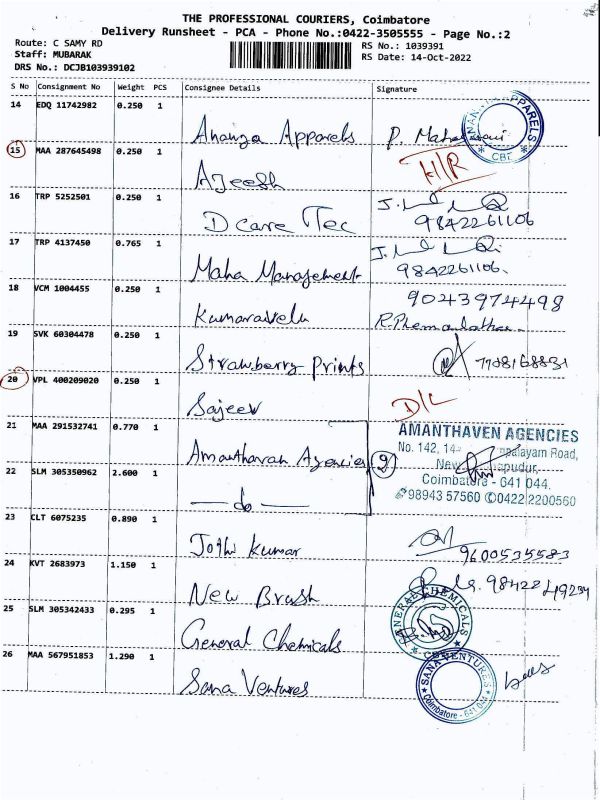 THE PROFESSIONAL COURIERS, Coimbatore
Delivery Runsheet - PCA - Phone No.:0422-3505555 - Page No.:2
Route: C SAMY RD
Staff: MUBARAK
DRS No.: DCJB103939102
RS No.: 1039391
RS Date: 14-Oct-2022
S No Consignment No Weight PCS Consignee Details Signature
14 EDQ 11742982 0.250 1
Ananya Apparels
APPARELS
CBE
15 MAA 287645498 0.250 1
Ajeesh
16 TRP 5252501 0.250 1
D Care Tec 9842261106
17 TRP 4137450 0.765 1
Maha Management 9842261106.
18 VCM 1004455 0.250 1
Kumaravelu 9043974498
19 SVK 60304478 0.250 1
Strawberry Prints
20 VPL 400209020 0.250 1
Sajeev D/L
21 MAA 291532741 0.770 1
Amanthavan Agencies
AMANTHAVEN AGENCIES
No. 142, Road,
Coimbatore - 641 044.
98943 57560 0422 2200560
22 SLM 305350962 2.600 1
— do —
23 CLT 6075235 0.890 1
Jothi Kumar 9600535583
24 KVT 2683973 1.150 1
New Brush
25 SLM 305342433 0.295 1
General Chemicals
CHEMICALS
26 MAA 567951853 1.290 1
Sana Ventures
SANA VENTURES
Coimbatore - 641 044